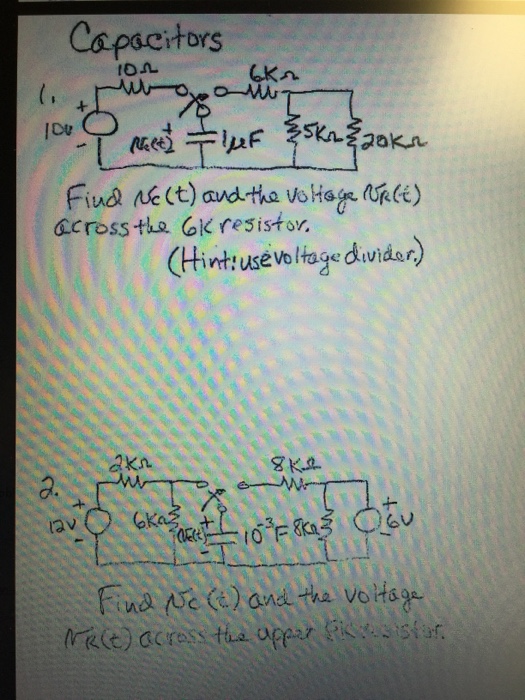 Capacitors
1. 10Ω 6KΩ
10v + - Vc(t) + - 1μF 5KΩ 20KΩ
Find Vc(t) and the voltage VR(t)
across the 6K resistor.
(Hint: use voltage divider.)
2. 2KΩ 8KΩ
12v + - 6KΩ Vc(t) + - 10⁻³F 8KΩ + - 6V
Find Vc(t) and the voltage
VR(t) across the upper 8K resistor.